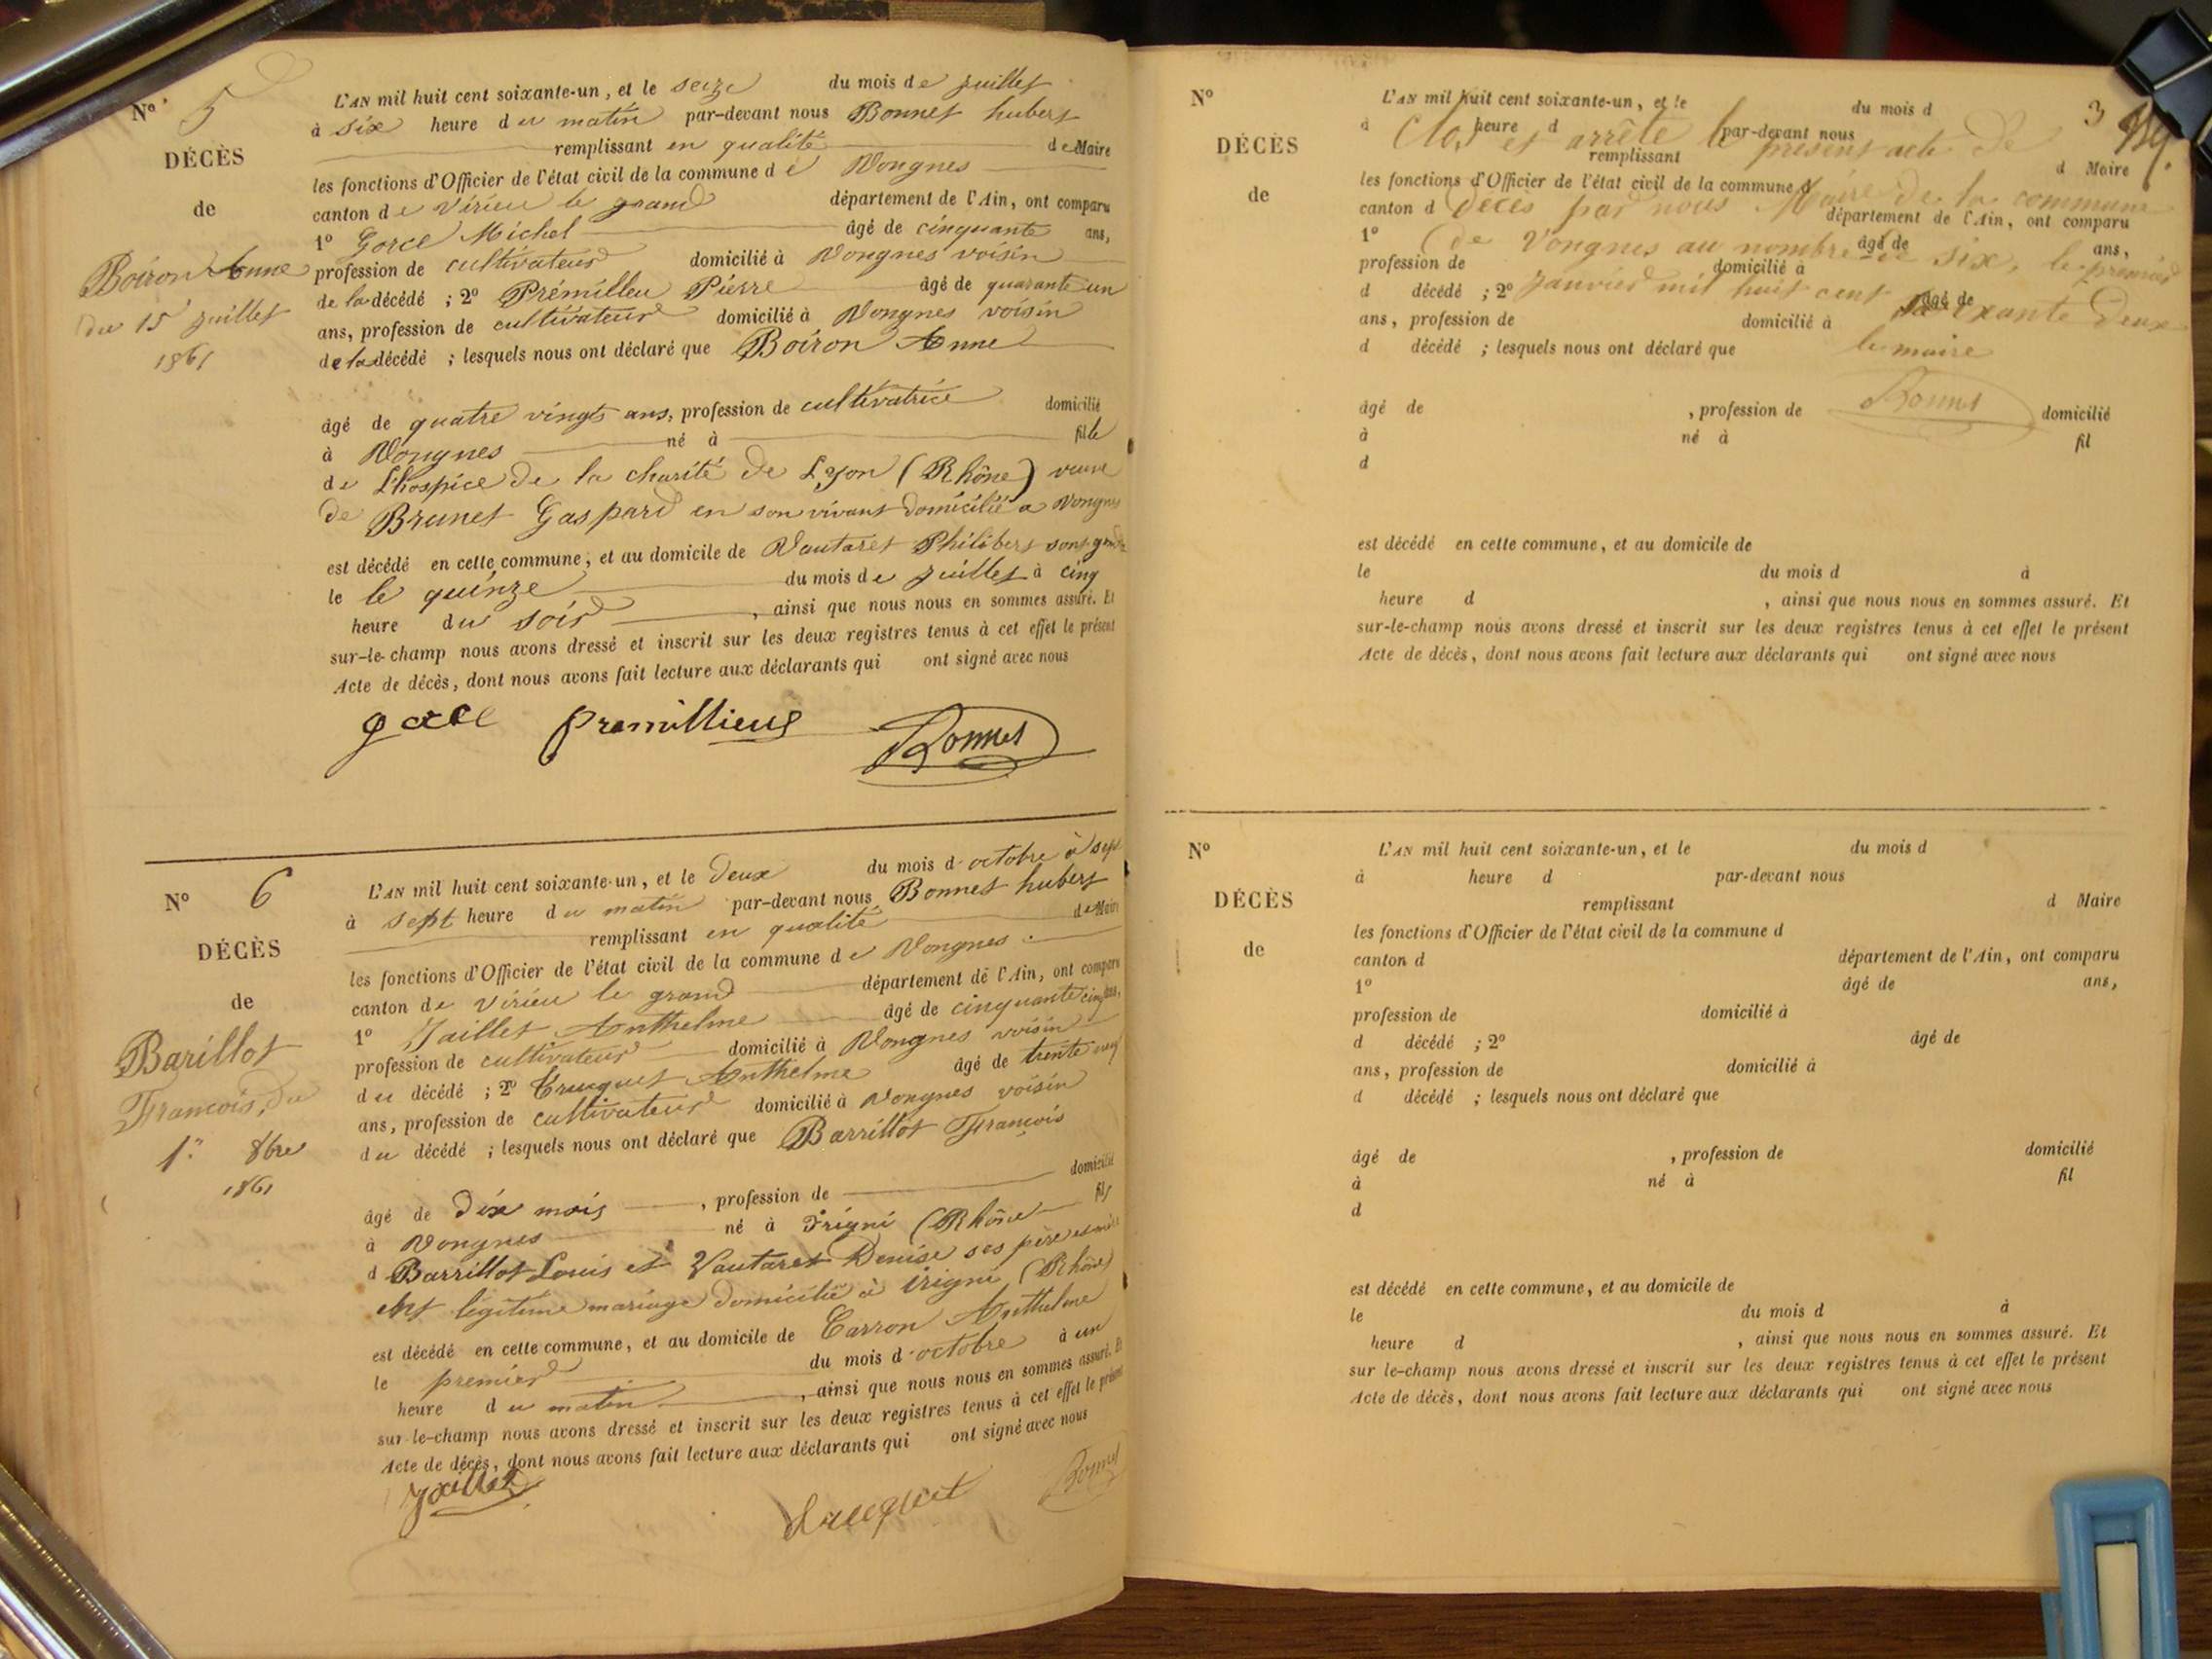 Nº 5
DÉCÈS
de
Boiron Anne
du 15 juillet
1861
L'AN mil huit cent soixante-un, et le seize du mois de juillet
à six heure du matin par-devant nous Bonnet hubert
remplissant en qualité de Maire
les fonctions d'Officier de l'état civil de la commune de Vongnes
canton de Virieu le grand département de l'Ain, ont comparu
1º Gorce Michel âgé de cinquante ans,
profession de cultivateur domicilié à Vongnes voisin
de la décédé ; 2º Prémilleu Pierre âgé de quarante un
ans, profession de cultivateur domicilié à Vongnes voisin
de la décédé ; lesquels nous ont déclaré que Boiron Anne
âgé de quatre vingts ans, profession de cultivatrice domicilié
à Vongnes né à fille
de L'hospice de la charité de Lyon (Rhône) veuve
de Brunet Gaspard en son vivant domicilié a Vongnes
est décédé en cette commune, et au domicile de Vautaret Philibert son gendre
le le quinze du mois de juillet à cinq
heure du soir , ainsi que nous nous en sommes assuré. Et
sur-le-champ nous avons dressé et inscrit sur les deux registres tenus à cet effet le présent
Acte de décès, dont nous avons fait lecture aux déclarants qui ont signé avec nous
Premillieux Bonnet
Nº 6
DÉCÈS
de
Barillot
François, du
1er 8bre
1861
L'AN mil huit cent soixante-un, et le deux du mois d'octobre à sept
à sept heure du matin par-devant nous Bonnet hubert
remplissant en qualité de Maire
les fonctions d'Officier de l'état civil de la commune de Vongnes
canton de Virieu le grand département de l'Ain, ont comparu
1º Jaillet Anthelme âgé de cinquante cinq ans,
profession de cultivateur domicilié à Vongnes voisin
du décédé ; 2º Truquet Anthelme âgé de trente neuf
ans, profession de cultivateur domicilié à Vongnes voisin
du décédé ; lesquels nous ont déclaré que Barrillot François
âgé de dix mois , profession de domicilié
à Vongnes né à Irigni (Rhône fils
d Barrillot Louis et Vautaret Denise ses père et mère
légitime mariage domicilié à Irigni (Rhône)
est décédé en cette commune, et au domicile de Carron Anthelme
le premier du mois d'octobre à un
heure du matin , ainsi que nous nous en sommes assuré. Et
sur-le-champ nous avons dressé et inscrit sur les deux registres tenus à cet effet le présent
Acte de décès, dont nous avons fait lecture aux déclarants qui ont signé avec nous
Jaillet Bonnet
3
Nº
DÉCÈS
de
L'AN mil huit cent soixante-un, et le du mois d
à heure d par-devant nous
Clos et arrêté le présent acte de
remplissant d Maire
les fonctions d'Officier de l'état civil de la commune d
décès par nous Maire de la commune
canton d département de l'Ain, ont comparu
1º âgé de ans,
de Vongnes au nombre de six, le premier
profession de domicilié à
janvier mil huit cent soixante deux
d décédé ; 2º âgé de
ans, profession de domicilié à
le maire
d décédé ; lesquels nous ont déclaré que
Bonnet
âgé de , profession de domicilié
à né à fil
d
est décédé en cette commune, et au domicile de
le du mois d à
heure d , ainsi que nous nous en sommes assuré. Et
sur-le-champ nous avons dressé et inscrit sur les deux registres tenus à cet effet le présent
Acte de décès, dont nous avons fait lecture aux déclarants qui ont signé avec nous
Nº
DÉCÈS
de
L'AN mil huit cent soixante-un, et le du mois d
à heure d par-devant nous
remplissant d Maire
les fonctions d'Officier de l'état civil de la commune d
canton d département de l'Ain, ont comparu
1º âgé de ans,
profession de domicilié à
d décédé ; 2º âgé de
ans, profession de domicilié à
d décédé ; lesquels nous ont déclaré que
âgé de , profession de domicilié
à né à fil
d
est décédé en cette commune, et au domicile de
le du mois d à
heure d , ainsi que nous nous en sommes assuré. Et
sur le-champ nous avons dressé et inscrit sur les deux registres tenus à cet effet le présent
Acte de décès, dont nous avons fait lecture aux déclarants qui ont signé avec nous